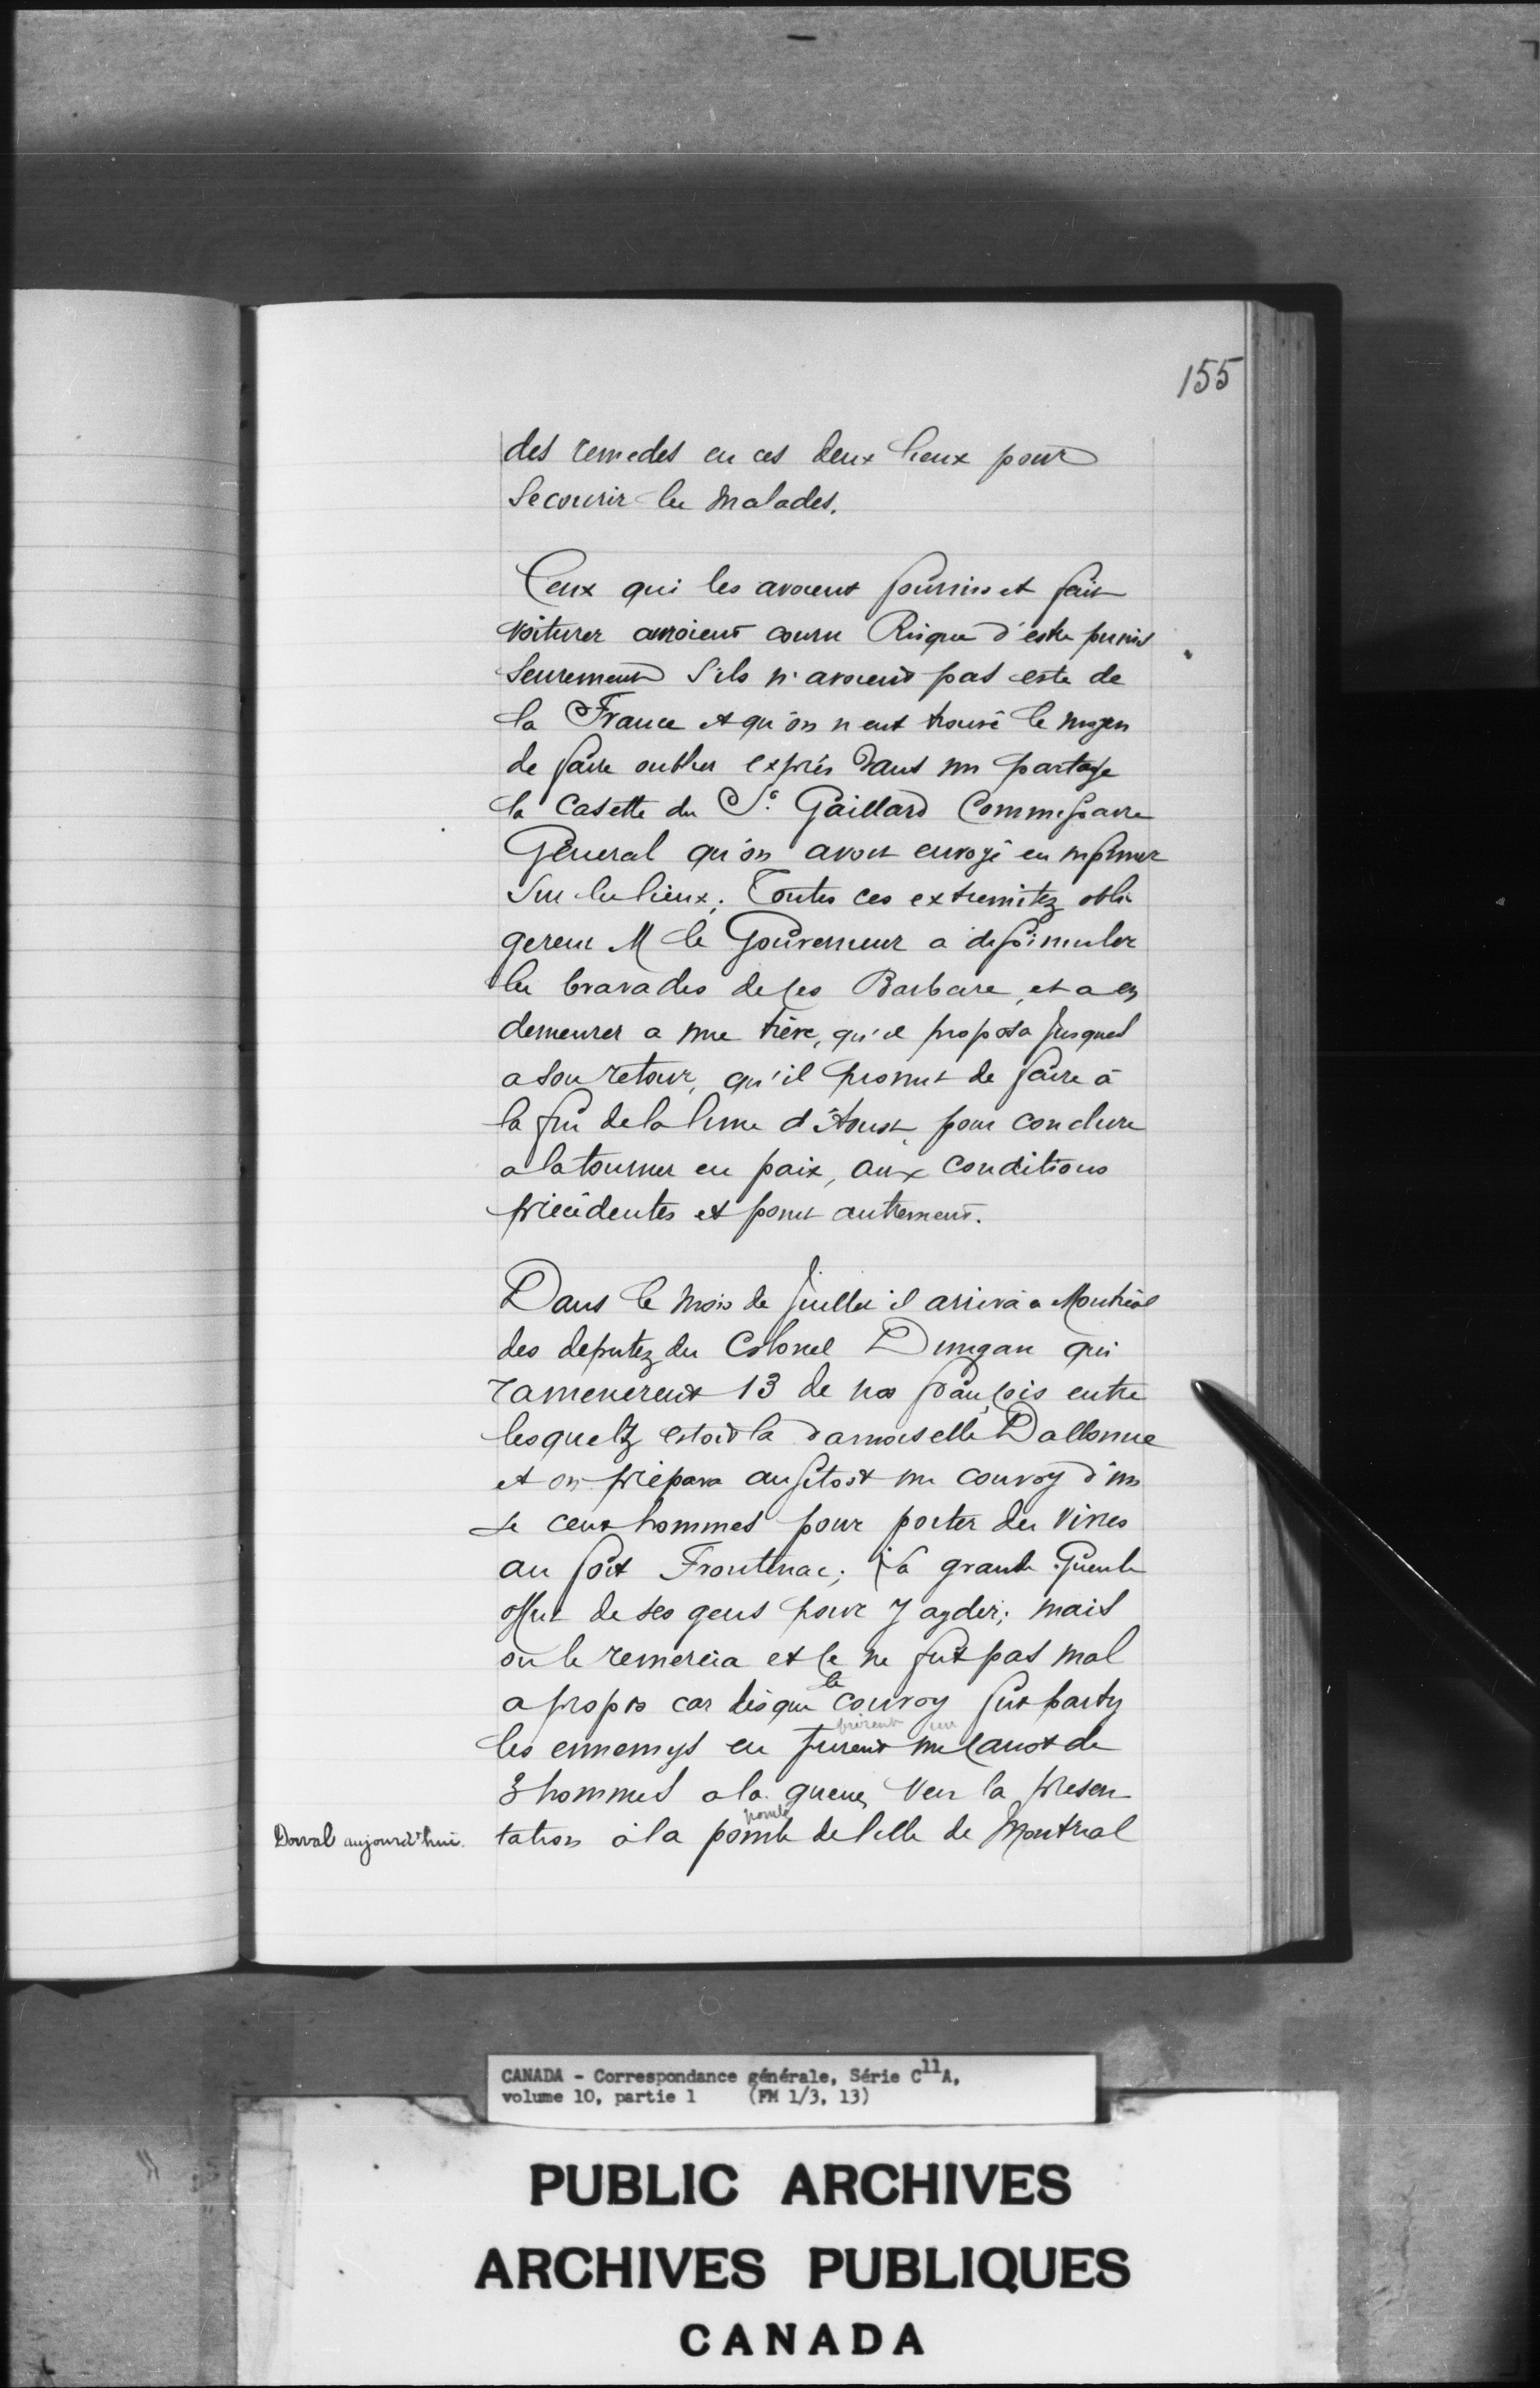 155
des remedes en ces deux lieux pour
secourir les malades.
Ceux qui les avoient fournis et fait
voiturer auroient couru Risque d'estre punis
seurement s'ils n'avoient pas esté de
la France et qu'on n'eut trouvé le moyen
de faire oublier exprés dans un partage
la Casette du Sr. Gaillard Commissaire
General qu'on avoit envoyé en informer
sur les lieux; Toutes ces extremitez obli
gerent M le Gouverneur a dissimuler
les bravades de ces Barbare, et a en
demeurer a une trève, qu'il proposa jusques
a son retour, qu'il promit de faire à
la fin de la lune d'Aoust, pour conclure
a la tourner en paix, aux conditions
précédentes et point autrement.
Dans le mois de Juillet il arriva a Montréal
des deputez du Colonel Dungan qui
ramenerent 13 de nos françois entre
lesquelz estoit la damoiselle Dallonne
et on prépara aussitost un convoy d'un
de cent hommes pour porter des vivres
au fort Frontenac; la grande Gueule
offrit de ses gens pour y ayder; mais
on le remercia et ce ne fut pas mal
le
a propos car dès que convoy fut party
prirent un
les ennemys en furent un canot de
3 hommes a la queue, vers la presen
pointe
Dorval aujourd'hui. tation à la pointe de l'isle de Montreal
CANADA - Correspondance générale, Série C11A,
volume 10, partie 1 (FM 1/3, 13)
PUBLIC ARCHIVES
ARCHIVES PUBLIQUES
CANADA